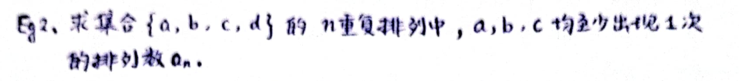 Eg 2、求集合{a,b,c,d}的 n重复排列中，a,b,c均至少出现1次
的排列数 aₙ.